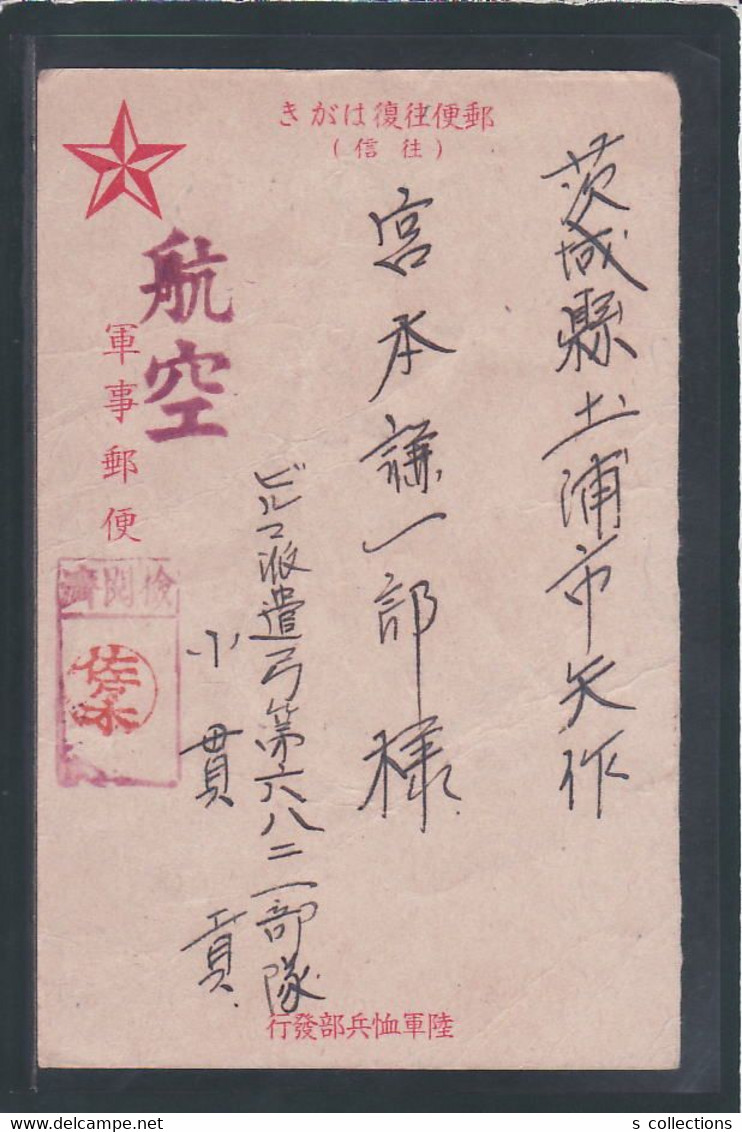 きがは復往便郵
(信往)
茨城縣土浦市矢作
宮本謙一郎様
ビルマ派遣弓第六八二一部隊
小貫 貢
航空
軍事郵便
濟閲検
佐々木
行發部兵恤軍陸
s collections